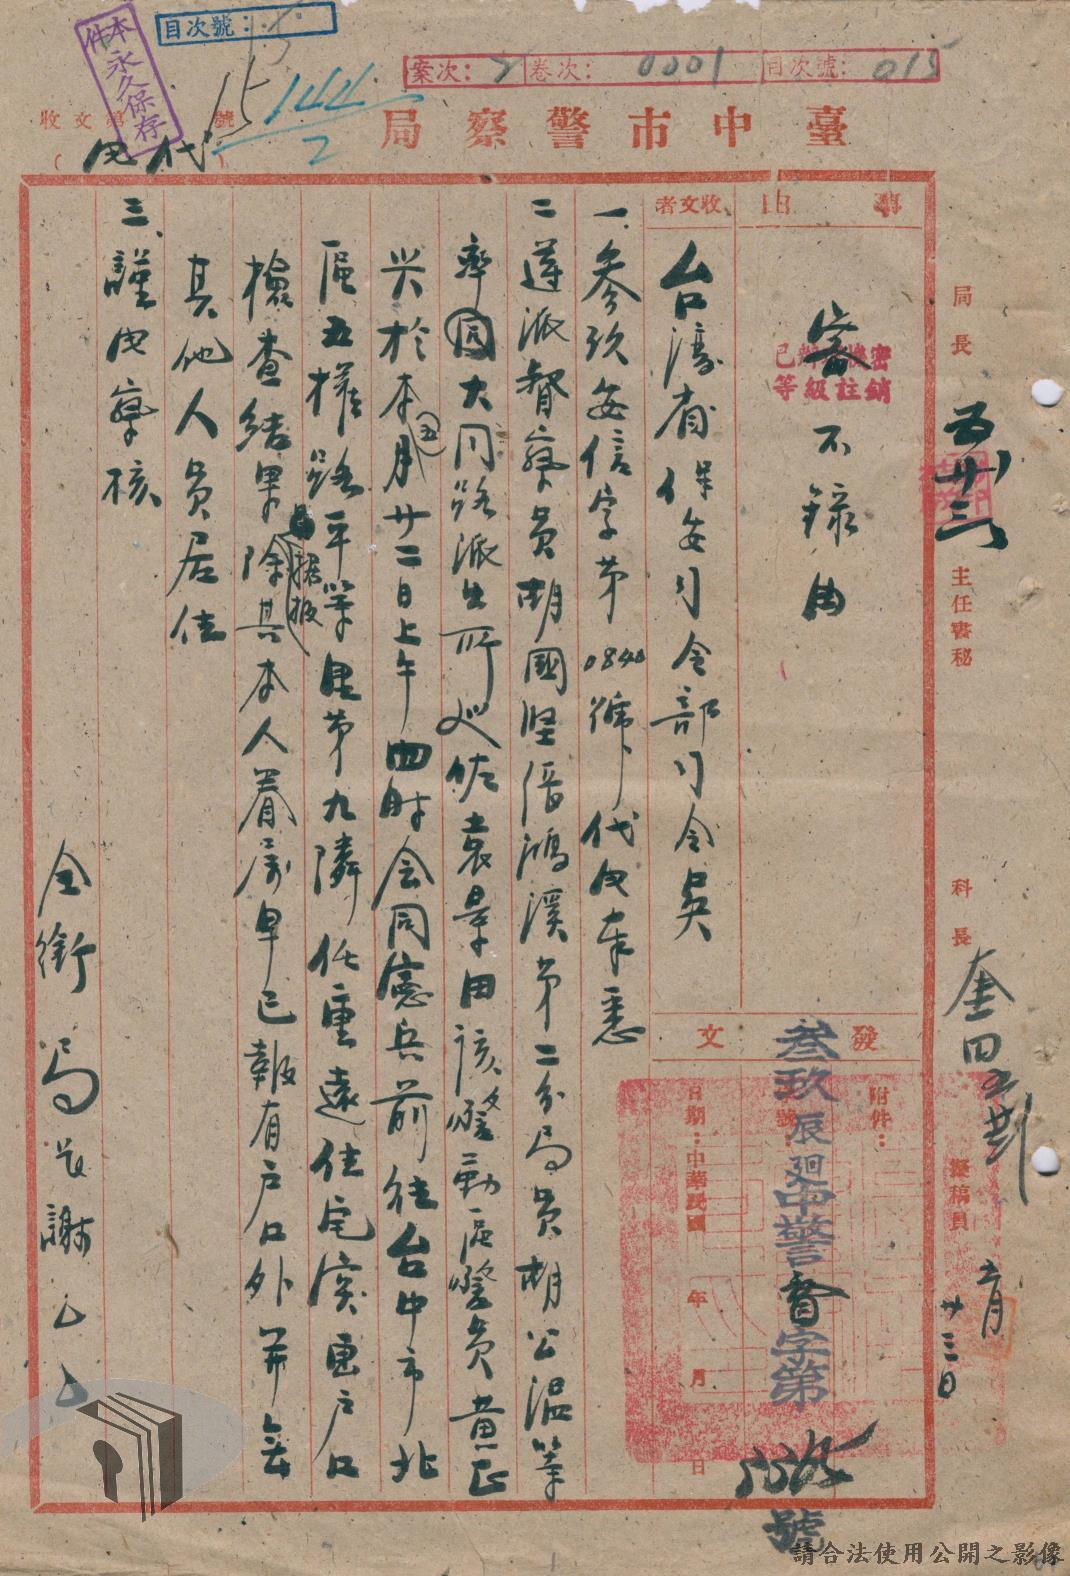 本件永久保存
目次號：15
案次：2 卷次：0001 目次號：015
收文第 號
15 144/2
(代電)
臺中市警察局
事由
密不錄由
已辦理機密等級註銷
收文者
台灣省保安司令部司令吳
發文
附件：
日期：中華民國 年 月 日
叁玖辰廻中警督字第
號
一、參玖安信字第0840號代電奉悉
二、遵派督察員胡國堅張鴻溪第二分局員胡公溫等
率同大同路派出所巡佐袁景田該管勤區警員黃正
興於本(五)月廿二日上午四時會同憲兵前往台中市北
區五權路平等里第九鄰任重遠住宅實施戶口
檢查結果據報除其本人眷屬早已報有戶口外並無
其他人員居住
三、謹電察核
全銜 局長謝
局長 五廿三
主任秘書
科長
擬稿員
五月廿三日
請合法使用公開之影像